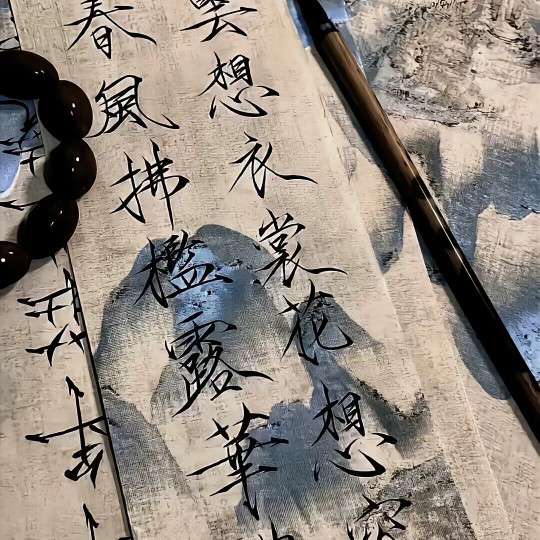 雲想衣裳花想容
春風拂檻露華